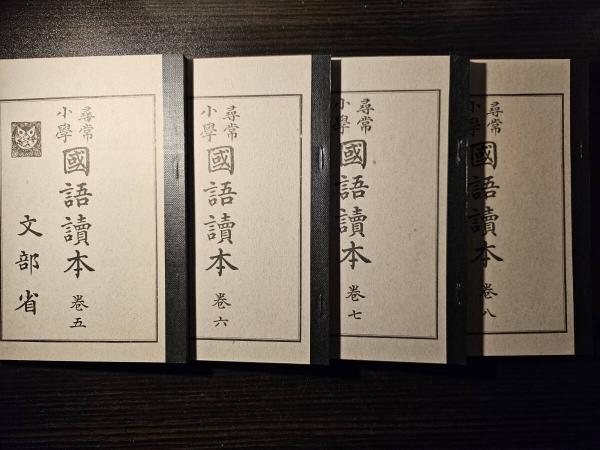 尋常
小學
國語讀本 卷五
文部省
尋常
小學
國語讀本 卷六
尋常
小學
國語讀本 卷七
尋常
小學
國語讀本 卷八